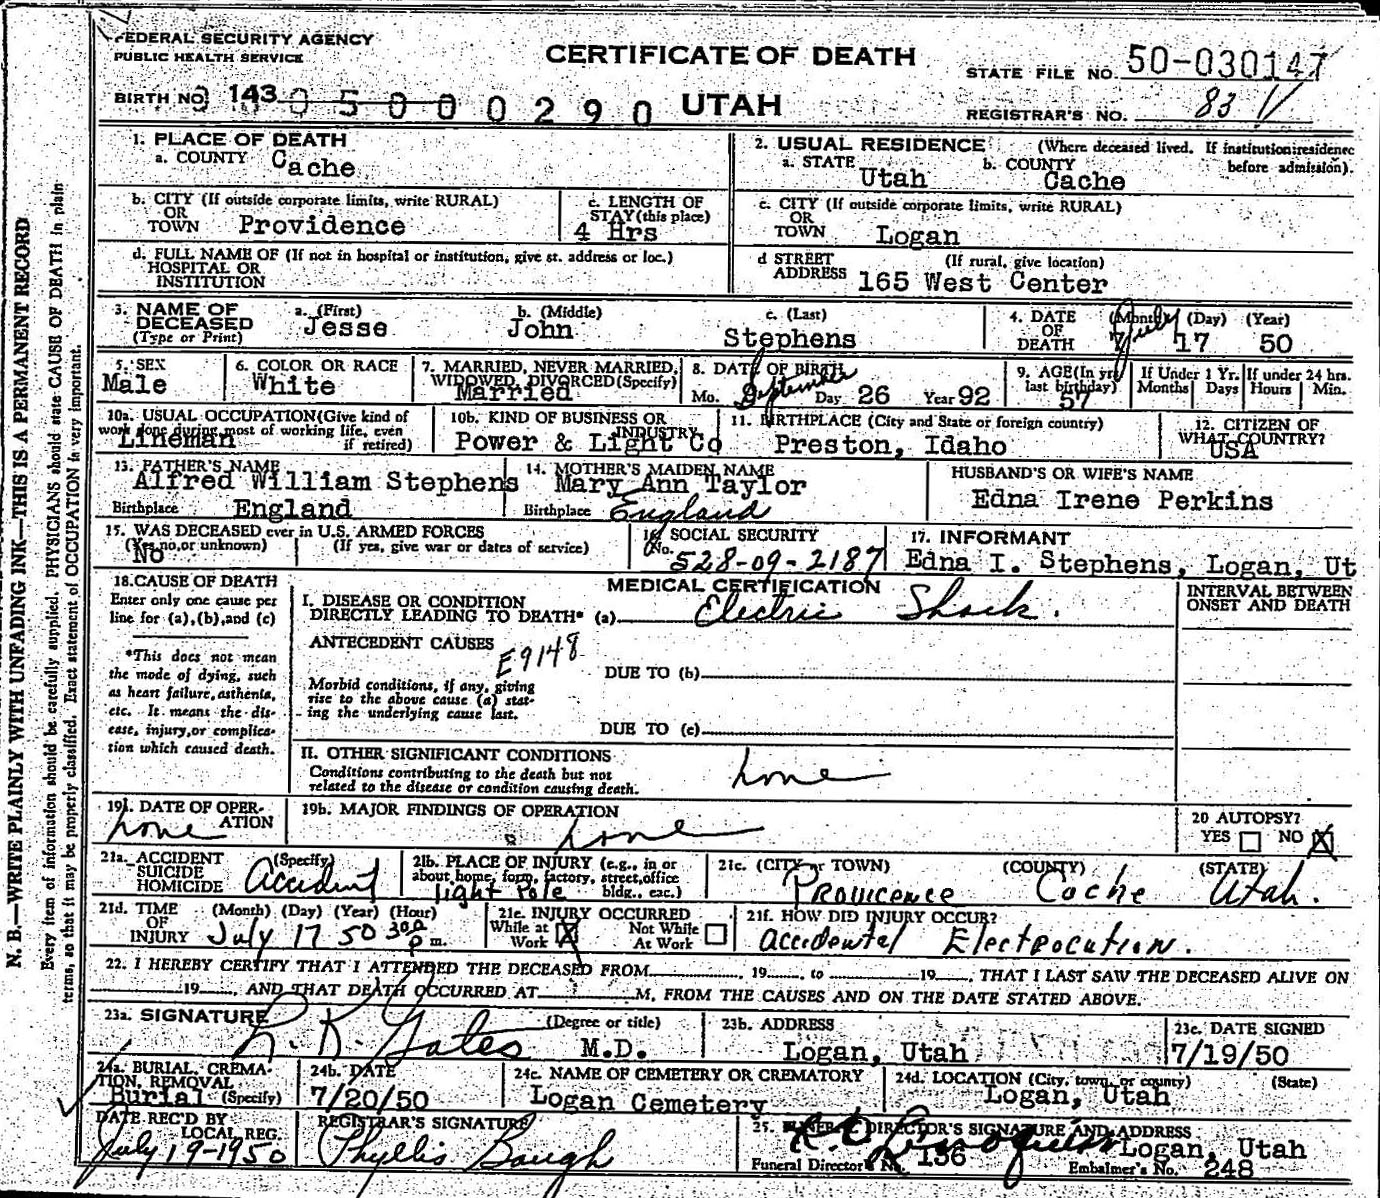 FEDERAL SECURITY AGENCY
PUBLIC HEALTH SERVICE
CERTIFICATE OF DEATH
STATE FILE NO. 50-030147
BIRTH NO. 143
0 5 0 0 0 2 9 0
UTAH
REGISTRAR'S NO. 83
1. PLACE OF DEATH
a. COUNTY Cache
2. USUAL RESIDENCE (Where deceased lived. If institution:residence before admission).
a. STATE Utah
b. COUNTY Cache
b. CITY (If outside corporate limits, write RURAL)
OR
TOWN Providence
c. LENGTH OF
STAY (this place)
4 Hrs
c. CITY (If outside corporate limits, write RURAL)
OR
TOWN Logan
d. FULL NAME OF (If not in hospital or institution, give st. address or loc.)
HOSPITAL OR
INSTITUTION
d STREET (If rural, give location)
ADDRESS 165 West Center
3. NAME OF
DECEASED
(Type or Print)
a. (First) Jesse
b. (Middle) John
c. (Last) Stephens
4. DATE
OF
DEATH
(Month) (Day) (Year)
July
7 17 50
5. SEX
Male
6. COLOR OR RACE
White
7. MARRIED, NEVER MARRIED,
WIDOWED, DIVORCED (Specify)
Married
8. DATE OF BIRTH
September
Mo. 9 Day 26 Year 92
9. AGE (In yrs
last birthday)
57
If Under 1 Yr.
Months Days
If under 24 hrs.
Hours Min.
10a. USUAL OCCUPATION (Give kind of
work done during most of working life, even
if retired)
Lineman
10b. KIND OF BUSINESS OR
INDUSTRY
Power & Light Co
11. BIRTHPLACE (City and State or foreign country)
Preston, Idaho
12. CITIZEN OF
WHAT COUNTRY?
USA
13. FATHER'S NAME
Alfred William Stephens
Birthplace England
14. MOTHER'S MAIDEN NAME
Mary Ann Taylor
Birthplace England
HUSBAND'S OR WIFE'S NAME
Edna Irene Perkins
15. WAS DECEASED ever in U.S. ARMED FORCES
(Yes, no, or unknown) (If yes, give war or dates of service)
No
16. SOCIAL SECURITY
No. 528-09-2187
17. INFORMANT
Edna I. Stephens, Logan, Ut
18. CAUSE OF DEATH
Enter only one cause per
line for (a), (b), and (c)
*This does not mean
the mode of dying, such
as heart failure, asthenia,
etc. It means the dis-
ease, injury, or complica-
tion which caused death.
MEDICAL CERTIFICATION
INTERVAL BETWEEN
ONSET AND DEATH
I. DISEASE OR CONDITION
DIRECTLY LEADING TO DEATH* (a) Electric Shock.
ANTECEDENT CAUSES
E9148
DUE TO (b)
Morbid conditions, if any, giving
rise to the above cause (a) stat-
ing the underlying cause last.
DUE TO (c)
II. OTHER SIGNIFICANT CONDITIONS
Conditions contributing to the death but not
related to the disease or condition causing death.
none
19a. DATE OF OPER-
ATION
none
19b. MAJOR FINDINGS OF OPERATION
none
20 AUTOPSY?
YES NO X
21a. ACCIDENT
SUICIDE
HOMICIDE
(Specify)
Accident
21b. PLACE OF INJURY (e.g., in or
about home, farm, factory, street, office
bldg., exc.)
light Pole
21c. (CITY or TOWN) (COUNTY) (STATE)
Providence Cache Utah.
21d. TIME
OF
INJURY
(Month) (Day) (Year) (Hour)
July 17 50 300 P m.
21e. INJURY OCCURRED
While at
Work X
Not While
At Work
21f. HOW DID INJURY OCCUR?
Accidental Electrocution.
22. I HEREBY CERTIFY THAT I ATTENDED THE DECEASED FROM , 19 , to 19 , THAT I LAST SAW THE DECEASED ALIVE ON
19 , AND THAT DEATH OCCURRED AT M, FROM THE CAUSES AND ON THE DATE STATED ABOVE.
23a. SIGNATURE
R. K. Gates
(Degree or title)
M.D.
23b. ADDRESS
Logan, Utah
23c. DATE SIGNED
7/19/50
24a. BURIAL, CREMA-
TION, REMOVAL
Burial (Specify)
24b. DATE
7/20/50
24c. NAME OF CEMETERY OR CREMATORY
Logan Cemetery
24d. LOCATION (City, town, or county) (State)
Logan, Utah
DATE REC'D BY
LOCAL REG.
July 19-1950
REGISTRAR'S SIGNATURE
Phyllis Baugh
25. FUNERAL DIRECTOR'S SIGNATURE AND ADDRESS
Logan, Utah
Funeral Director's No. 136
Embalmer's No. 248
N. B.—WRITE PLAINLY WITH UNFADING INK—THIS IS A PERMANENT RECORD
Every item of information should be carefully supplied. PHYSICIANS should state CAUSE OF DEATH in plain
terms, so that it may be properly classified. Exact statement of OCCUPATION is very important.